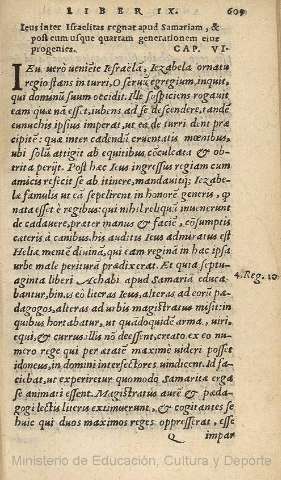 LIBER IX. 609
Ieus inter Israelitas regnat apud Samariam, &
post eum usque quartam generationem eius
progenies. CAP. VI.
IEu verò venit in Israëla, Iezabela ornatu
regio stans in turri, O seruũ egregium, inquit,
qui dominũ suum occidit. Ille suspiciens rogauit
eam quæ nã esset, iubens ad se descendere, tandẽ
eunuchis ipsius imperat, ut ea de turri dent præ
cipitẽ: quæ inter cadendũ cruentatis mœnibus,
ubi solũ attigit ab equitibus cõculcata & ob-
trita perijt. Post hæc Ieus ingressus regiam cum
amicis refecit se ab itinere, mandauitq; Iezabe-
læ famulis ut eã sepelirent in honorẽ generis, q̃
nata esset è regibus: qui nihil reliquũ inuenerunt
de cadauere, præter manus & faciẽ, cõsumptis
cæteris à canibus. his auditis Ieus admiratus est
Heliæ mentẽ diuinã, qui eam reginã in hac ipsa
urbe malè perituram prædixerat. Et quia septu-
aginta liberi Achabi apud Samariã educa- 4. Reg. 10.
bantur, binas eò literas Ieus, alteras ad eorũ pæ-
dagogos, alteras ad urbis magistratus misit: in
quibus hortabatur, ut quãdoquidẽ arma, uiri,
equi, & currus illis nõ deessent, creato ex eo nu-
mero rege qui per ætatẽ maximè uideri posset
idoneus, in domini interfectores uindicent. Id fa-
ciebat, ut experiretur quomodo Samaritæ erga
se animati essent. Magistratus autẽ & pæda-
gogi lectis literis extimuerunt, & cogitantes se
huic qui duos maximos reges oppresserat, esse
Q impar
Ministerio de Educación, Cultura y Deporte